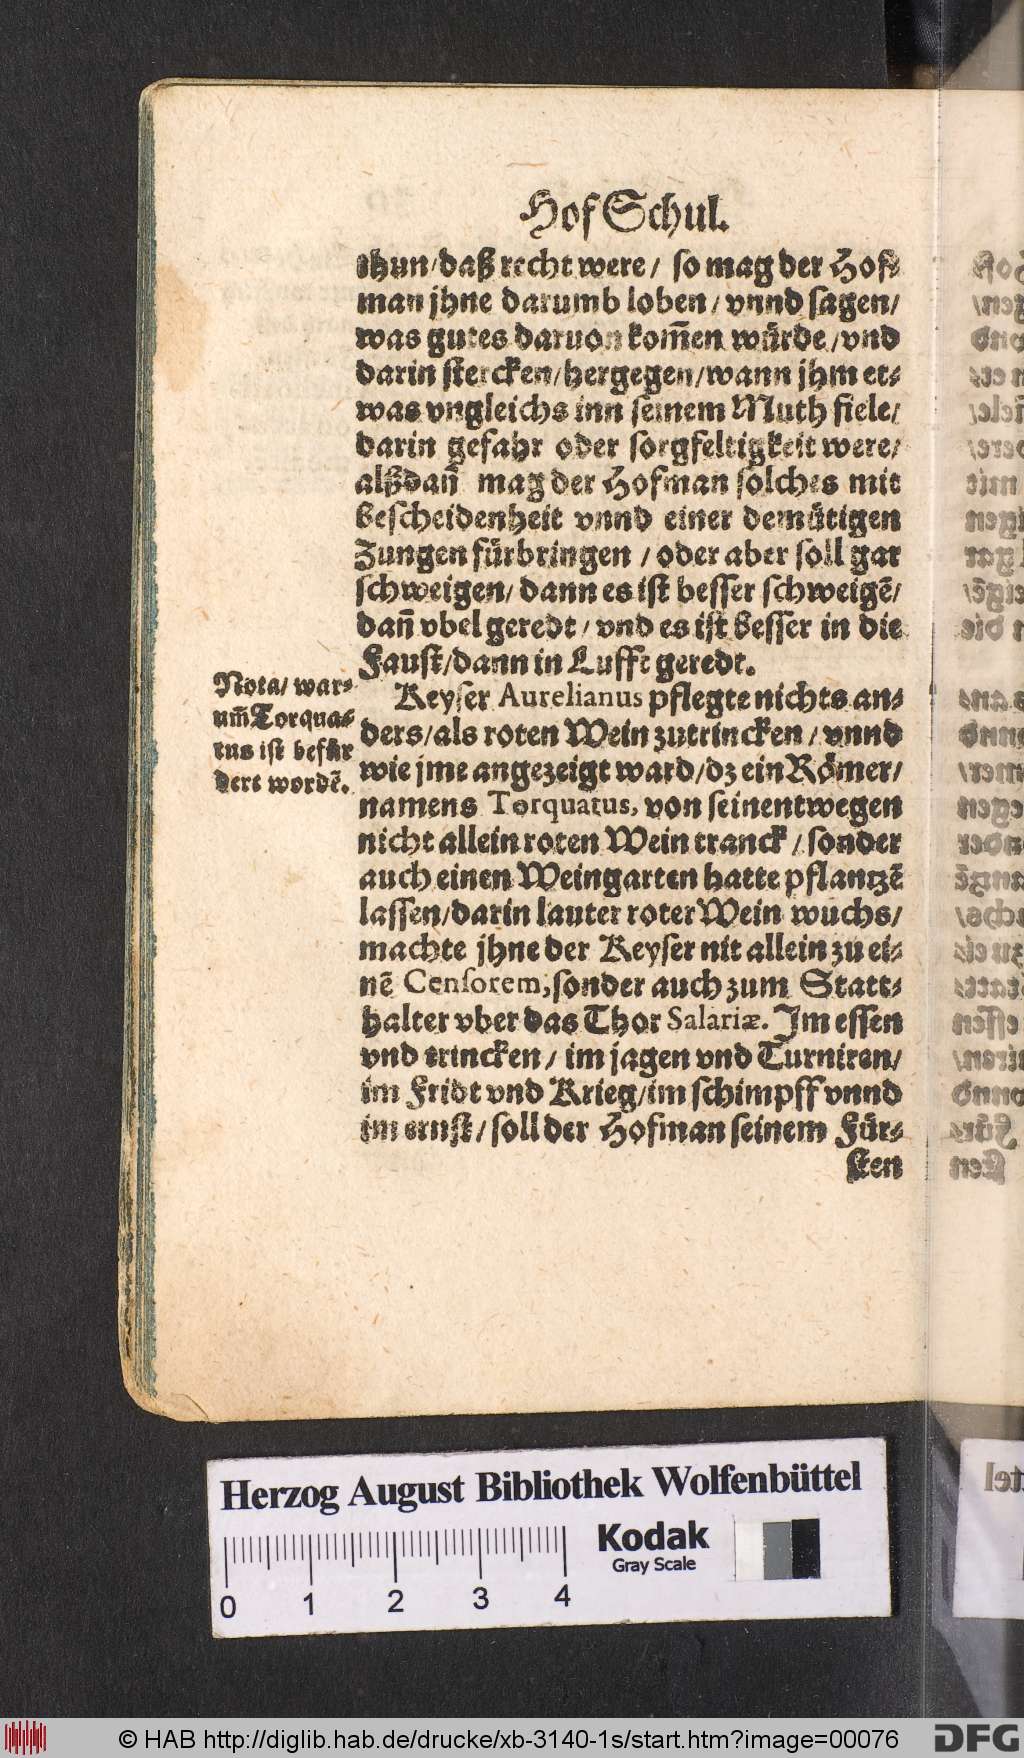 Hof Schul.
thun/daß recht were/ so mag der Hof⸗
man jhne darumb loben/ vnnd sagen/
was gutes daruon kom̃en wuͤrde/vnd
darin stercken/hergegen/wann jhm et⸗
was vngleichs inn seinem Muth fiele/
darin gefahr oder sorgfeltigkeit were/
alßdañ mag der Hofman solches mit
bescheidenheit vnnd einer demuͤtigen
Zungen fuͤrbringen / oder aber soll gar
schweigen/ dann es ist besser schweigẽ/
dañ vbel geredt/ vnd es ist besser in die
Faust/dann in Lufft geredt.
Nota/ war⸗
um̃ Torqua⸗
tus ist befuͤr
dert wordẽ.
Keyser Aurelianus pflegte nichts an⸗
ders/als roten Wein zutrincken/ vnnd
wie jme angezeigt ward/dz ein Roͤmer/
namens Torquatus, von seinentwegen
nicht allein roten Wein tranck / sonder
auch einen Weingarten hatte pflantzẽ
lassen/darin lauter roter Wein wuchs/
machte jhne der Keyser nit allein zu ei⸗
nẽ Censorem, sonder auch zum Statt⸗
halter vber das Thor Salariæ. Im essen
vnd trincken/ im jagen vnd Turniren/
im Fridt vnd Krieg/im schimpff vnnd
im ernst/ soll der Hofman seinem Fuͤr⸗
sten
Herzog August Bibliothek Wolfenbüttel
Kodak
Gray Scale
0 1 2 3 4
© HAB http://diglib.hab.de/drucke/xb-3140-1s/start.htm?image=00076
DFG